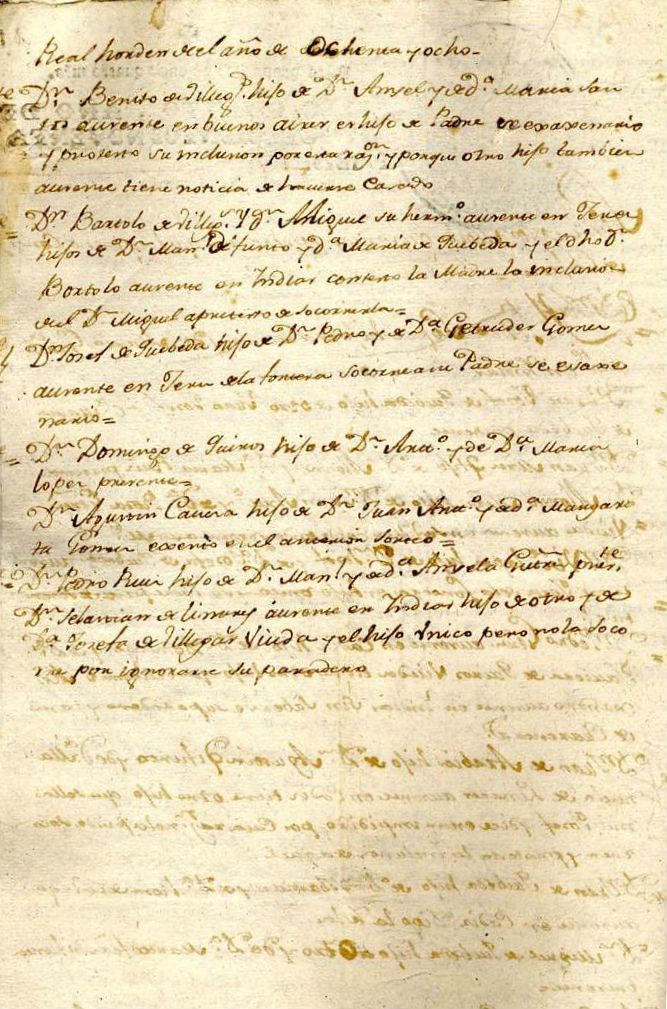 Real horden del año de Ochenta y ocho-
Dn. Benito de Villegs. hijo de Dn. Angel y de da. Maria San
tos aucente en buenos aires es hijo de Padre sexaxenario
y protexto su inclusion por esta razn. y porque otro hijo tambien
aucente tiene noticia de haverse Casado
Dn. Bartolo de Villegs. Y dn. Miguel su hermo. aucente en Jerez
hijos de Dn. Manl. difunto y da. Maria de Quebeda y el dho Dn.
Bortolo aucente en Indias contexto la Madre la inclusion
del Dn. Miguel a pretexto de socorrerla=
Dn. Josef de Quebeda hijo de Dn. Pedro y de Da. Getrudes Gomez
aucente en Jerez de la frontera socorre a su Padre sexaxe
nario=
Dn. Domingo de Quiros hijo de Dn. Anto. y de Da. Maria
lopez presente=
Dn. Agustin Cavera hijo de Dn. Juan Anto. y de da. Margari
ta Gomez exento en el anterior Sorteo=
Dn. Pedro Ruiz hijo de Dn. Manl. y de da. Angela Gutrrz. preste.
Dn. Sebastian de linares aucente en Indias hijo de otro y de
Da. Josefa de Villegas Viuda y el hijo Vnico pero no la soco
rre por ignorarse su paradero